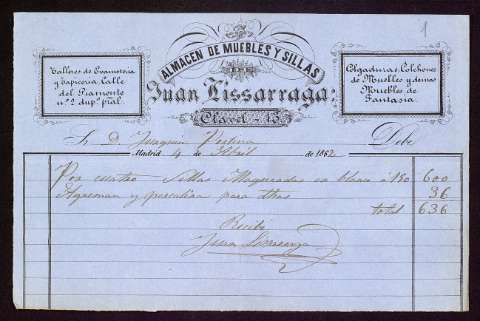 1
ALMACEN DE MUEBLES Y SILLAS
DE
Juan Lissarraga
Clavel 13
Talleres de Ebanisteria
y Tapiceria, Calle
del Piamonte
nº 2 dupº pral.
Colgaduras, Colchones
de Muelles y demas
Muebles de
Fantasia.
Sr. D. Joaquin Debe
Madrid 4 de Abril 1862
Por cuatro Sillas en blanco á 150 600
y para otras 36
total 636
Recibi
Juan Lissarraga